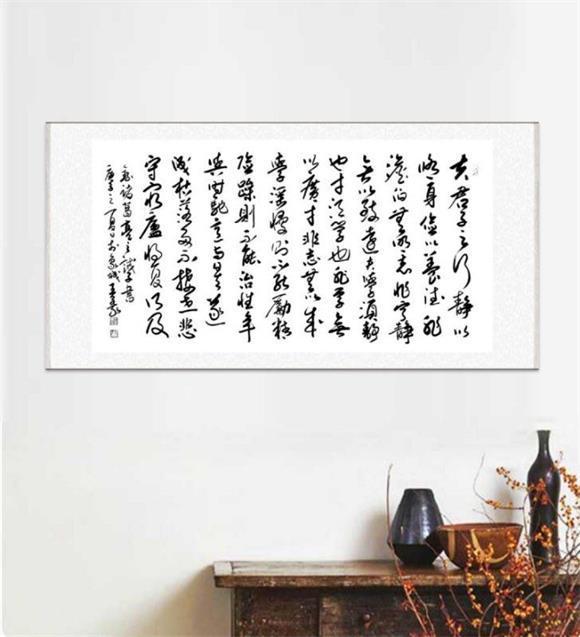 夫君子之行静以
修身俭以养德非
澹泊無以明志非宁静
無以致遠夫学須静
也才须学也非学無
以廣才非志無以成
學淫慢则不能勵精
险躁则不能治性年
與时馳意与日去遂
成枯落多不接世悲
守窮廬将復何及
諸葛亮之诫子書
庚子之夏日於